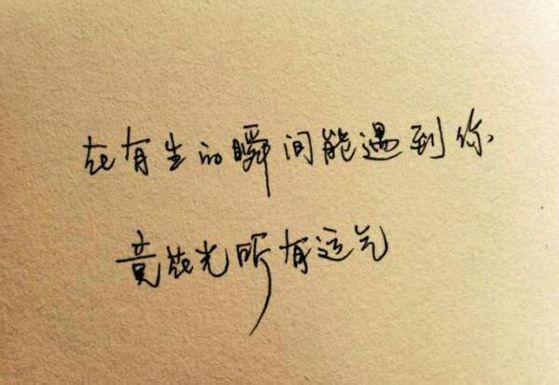 在有生的瞬间能遇到你
竟花光所有运气